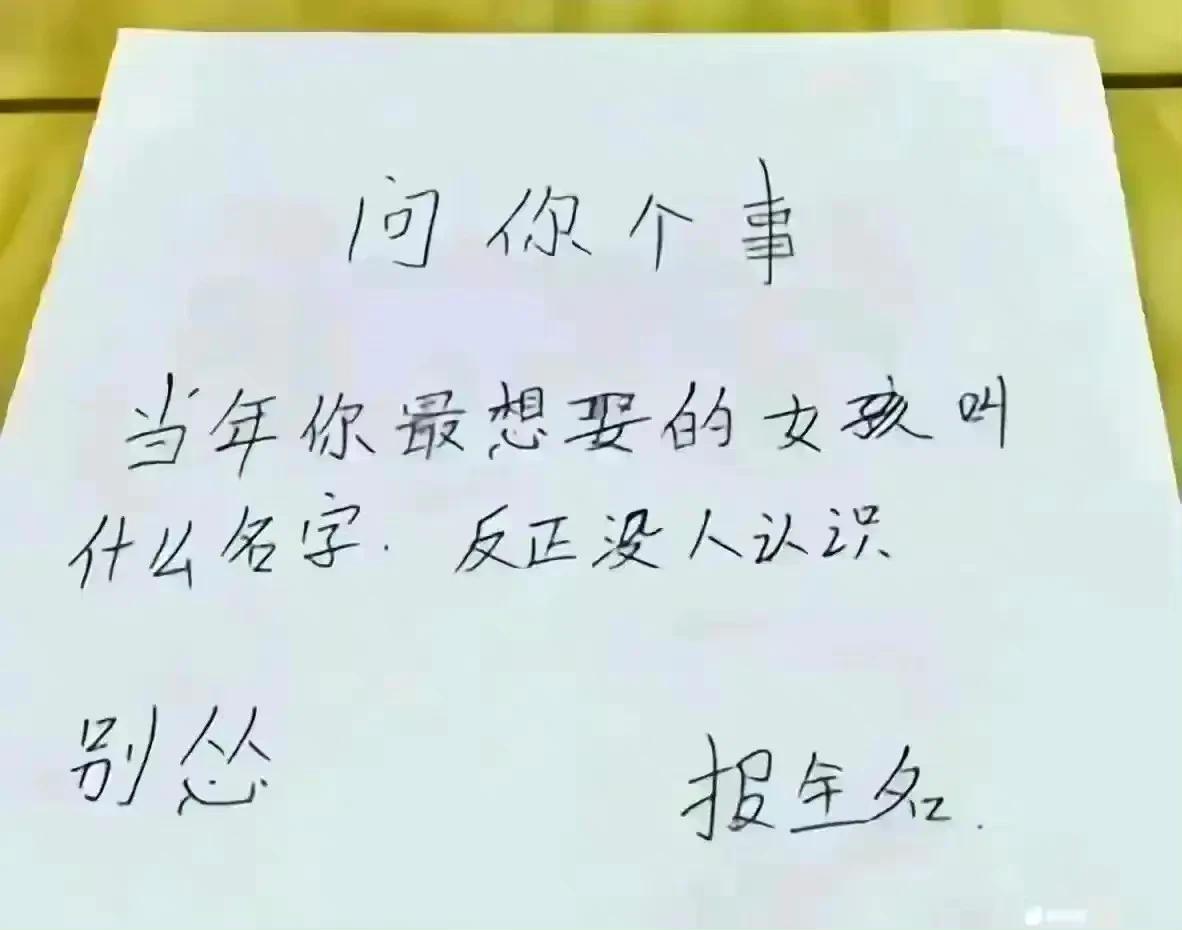 问你个事
当年你最想娶的女孩叫
什么名字. 反正没人认识
别怂
报全名.